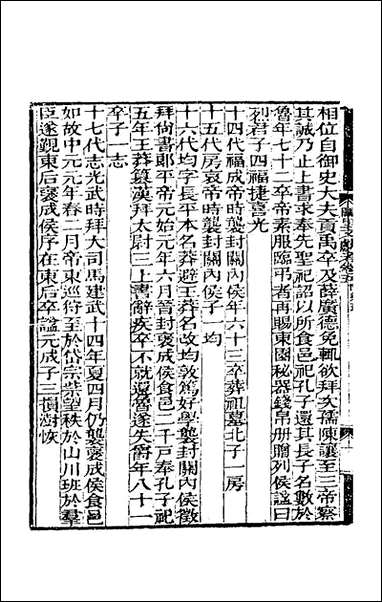 相位自御史大夫貢禹卒及薛廣德免輒欲拜文孺陳讓至三帝察
其誠乃止上書求奉先聖祀詔以所食邑祀孔子還其長子名數於
魯年七十二卒帝素服臨弔者再賜東園秘器錢帛冊贈列侯諡曰
烈君子四福捷喜光
十四代福成帝時襲封關內侯年六十三卒葬祖墓北子一房
十五代房哀帝時襲封關內侯子一均
十六代均字長平本名莽避王莽名改均敦篤好學襲封關內侯徵
拜尙書郎平帝元始元年六月晉封襃成侯食邑二千戶奉孔子祀
五年王莽篡漢拜太尉三上書辭疾卒不就還魯遂失爵年八十一
卒子一志
十七代志光武時拜大司馬建武十四年夏四月仍襲襃成侯食邑
如故中元元年春二月帝東巡狩至於岱宗柴望秩於山川班於羣
臣遂覲東后襃成侯序在東后卒諡元成子三損澍恢